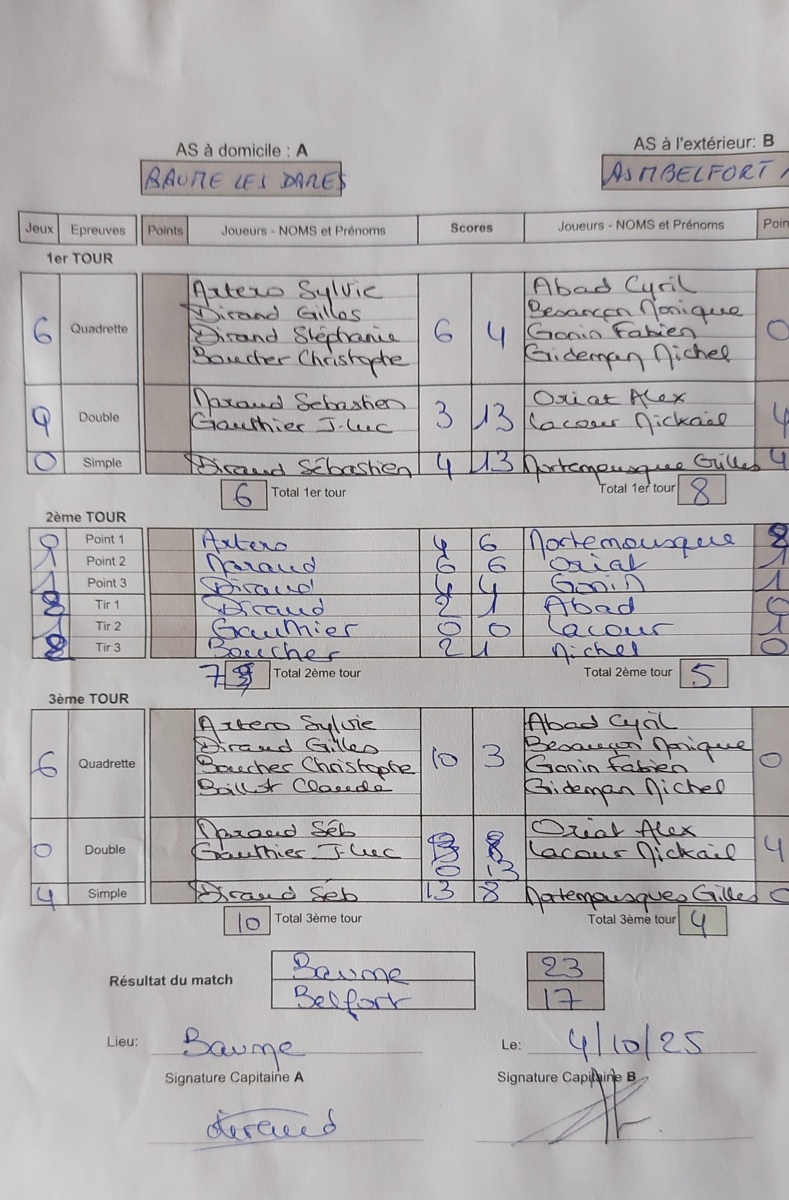 AS à domicile : A
AS à l'extérieur: B
BAUME LES DAMES
ASMBELFORT
Jeux Epreuves Points Joueurs - NOMS et Prénoms Scores Joueurs - NOMS et Prénoms Poin
1er TOUR
Artero Sylvie Abad Cyril
Dirand Gilles Besançon Monique
6 Quadrette Dirand Stéphanie 6 4 Gonin Fabien 0
Boucher Christophe Gideman Michel
Maraud Sebastien Oriat Alex
0 Double Gauthier J-Luc 3 13 Lacour Mickaël 4
0 Simple Diraud Sébastien 4 13 Mortemousque Gilles 4
6 Total 1er tour Total 1er tour 8
2ème TOUR
0 Point 1 Artero 4 6 Mortemousque 2
1 Point 2 Maraud 6 6 Oriat 1
1 Point 3 Diraud 4 4 Gonin 1
2 Tir 1 Diraud 2 1 Abad 0
1 Tir 2 Gauthier 0 0 Lacour 1
2 Tir 3 Boucher 2 1 Michel 0
7 Total 2ème tour Total 2ème tour 5
3ème TOUR
Artero Sylvie Abad Cyril
Dirand Gilles Besançon Monique
6 Quadrette Boucher Christophe 10 3 Gonin Fabien 0
Claude Gideman Michel
Maraud Séb Oriat Alex
0 Double Gauthier J-Luc Lacour Mickaël 4
0 13
4 Simple Diraud Séb 13 8 Mortemousques Gilles 0
10 Total 3ème tour Total 3ème tour 4
Résultat du match Baume 23
Belfort 17
Lieu: Baume Le: 4/10/25
Signature Capitaine A Signature Capitaine B